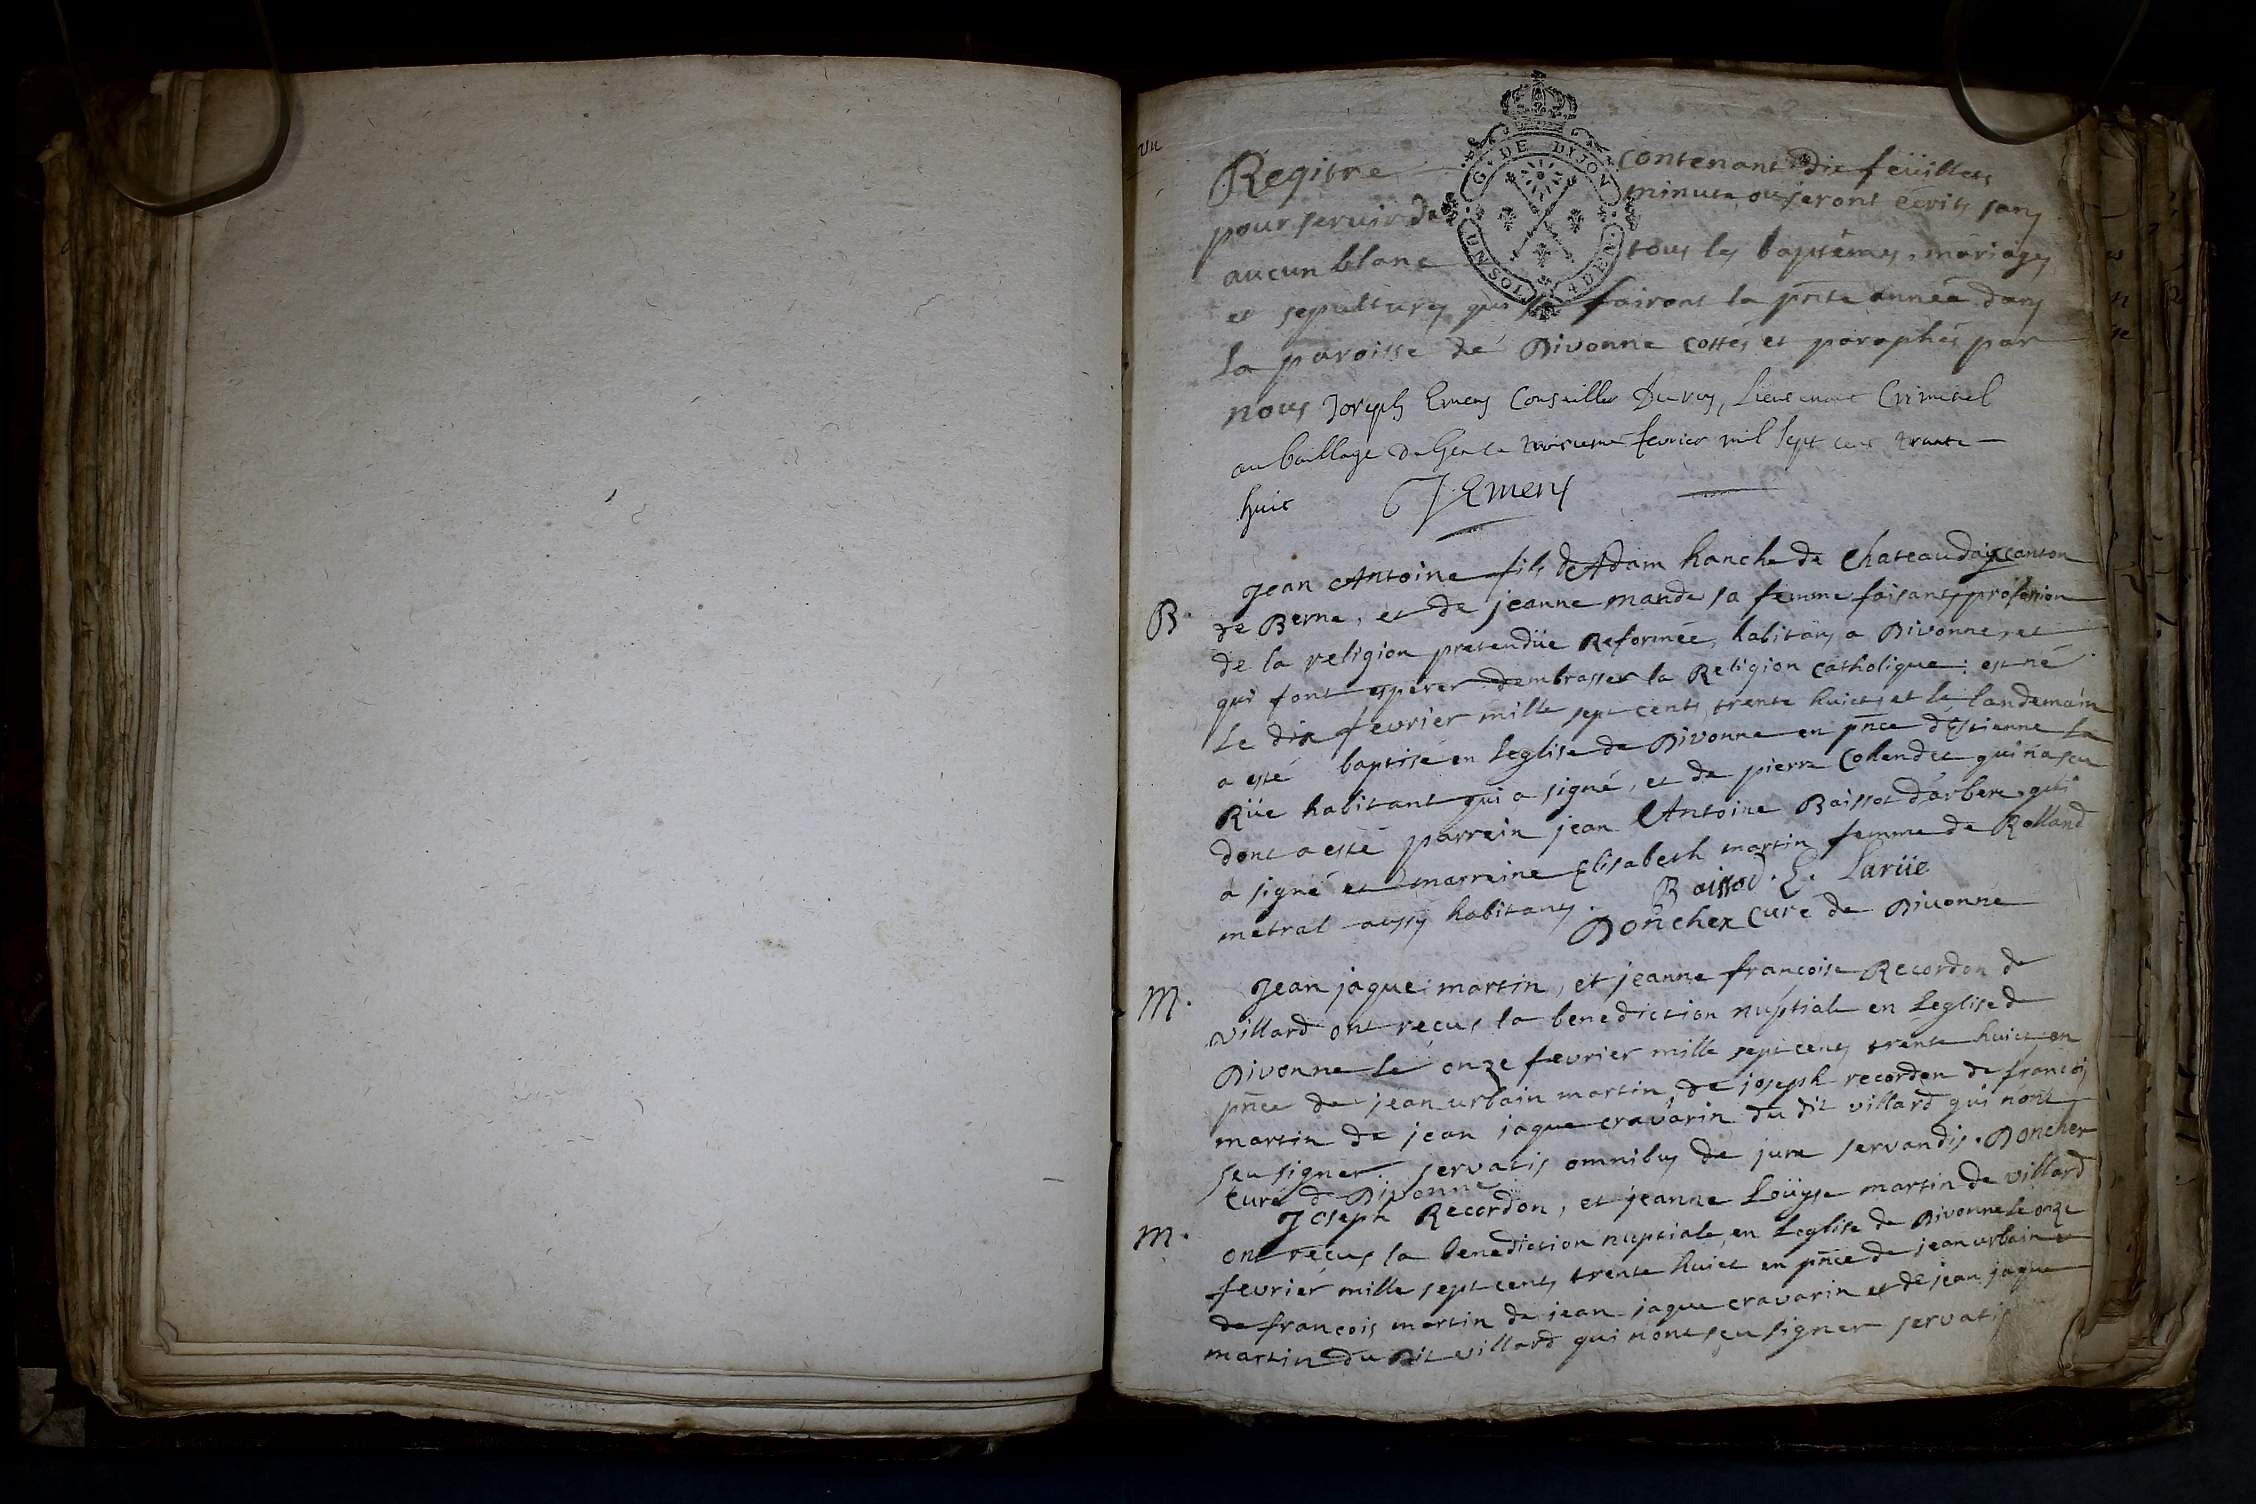 vu
Registre contenant dix feüillets
pour servir de minute ou seront écrits sans
aucun blanc tous les baptémes, mariages
et sepultures qui se fairont la pnte année dans
la paroisse de Divonne cottés et paraphés par
nous Joseph Emery Conseiller Du roy, Lieutenant Criminel
au baillage de Gex ce troisieme fevrier mil sept cent trante
huit J. Emery
G. DE DIJON
UN SOL 4 DEN
B. Jean Antoine fils d'Adam hanche de Chateaudoix canton
de Berne, et de jeanne mande sa femme faisants profession
de la religion pretendüe Reformée, habitans a Divonne, et
qui font esperer dembrasser la Religion catholique : est né
Le dix fevrier mille sept cents trente huict, et le landemain
a esté baptisé en Leglise de Divonne en pnce d'Estienne La
Rüe habitant qui a signé, et de pierre Collendee qui n'a sçu
dont a esté parrein jean Antoine Baissod d'arbere qui
a signé et marreine Elisabeth martin femme de Rolland
metral aussy habitans. Baissod. E. Larüe
Doncher curé de Divonne
M. Jean jaque martin, et jeanne francoise Recordon de
villard ont reçus la benediction nuptiale en Leglise d
Divonne le onze fevrier mille sept cents trente huict en
pnce de jean urbain martin, de joseph recordon de francois
martin de jean jaque cravarin du dit villard qui n'ont
seu signer. servatis omnibus de jure servandis. Doncher
Curé d Divonne
M. Joseph Recordon, et jeanne Loüyse martin de villard
ont reçus la benediction nuptiale en Leglise de Divonne le onze
fevrier mille sept cents trente huict en pnce de jean urbain
de francois martin de jean jaque cravarin et de jean jaque
martin du dit villard qui n'ont sçu signer servatis